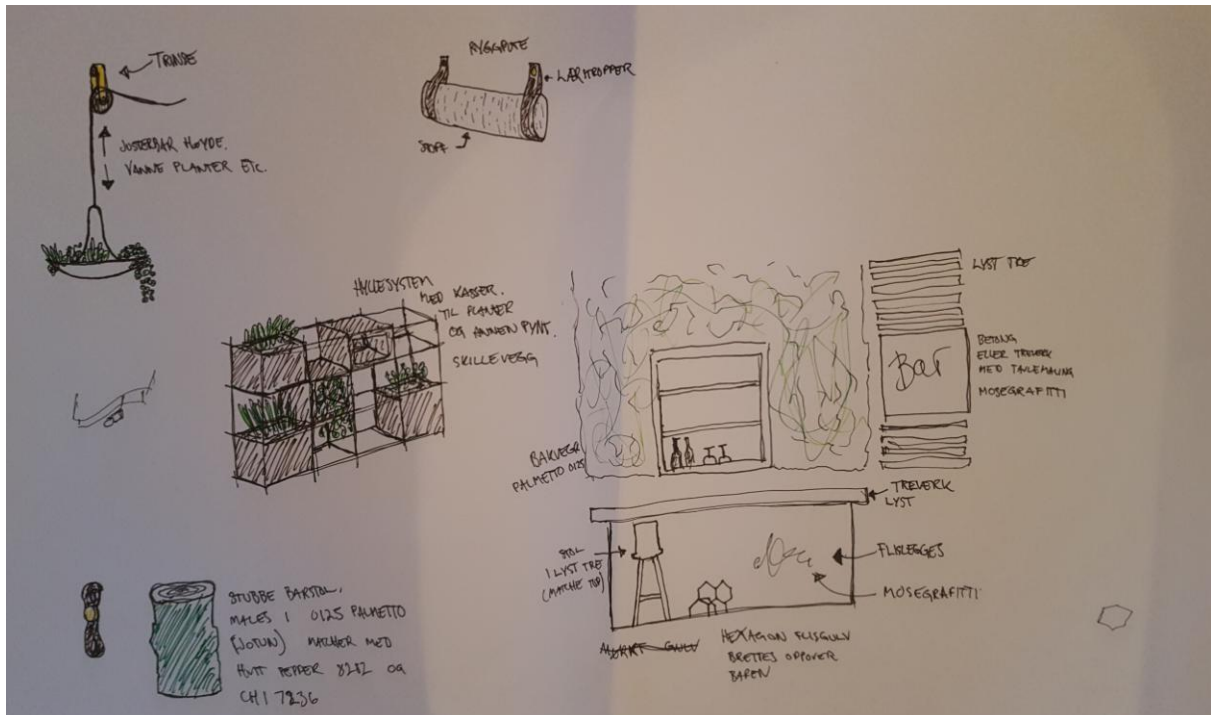 TRINSE
JUSTERBAR HØYDE.
VANNE PLANTER ETC.
RYGGPUTE
LÆRSTROPPER
STOFF
HYLLESYSTEM
MED KASSER.
TIL PLANTER
OG ANNEN PYNT.
SKILLEVEGG
LYST TRE
BETONG
ELLER TREVERK
MED TAVLEMALING
MOSEGRAFITTI
BAR
BAKVEGG
PALMETTO 0125
TREVERK
LYST
STOL
I LYST TRE
(MATCHE TOP)
FLISLEGGES
MOSEGRAFITTI
GULV
HEXAGON FLISGULV
BRETTES OPPOVER
BAREN
STUBBE BARSTOL,
MALES I 0125 PALMETTO
(JOTUN) MATCHER MED
HVIT PEPPER 8282 OG
CHI 7236